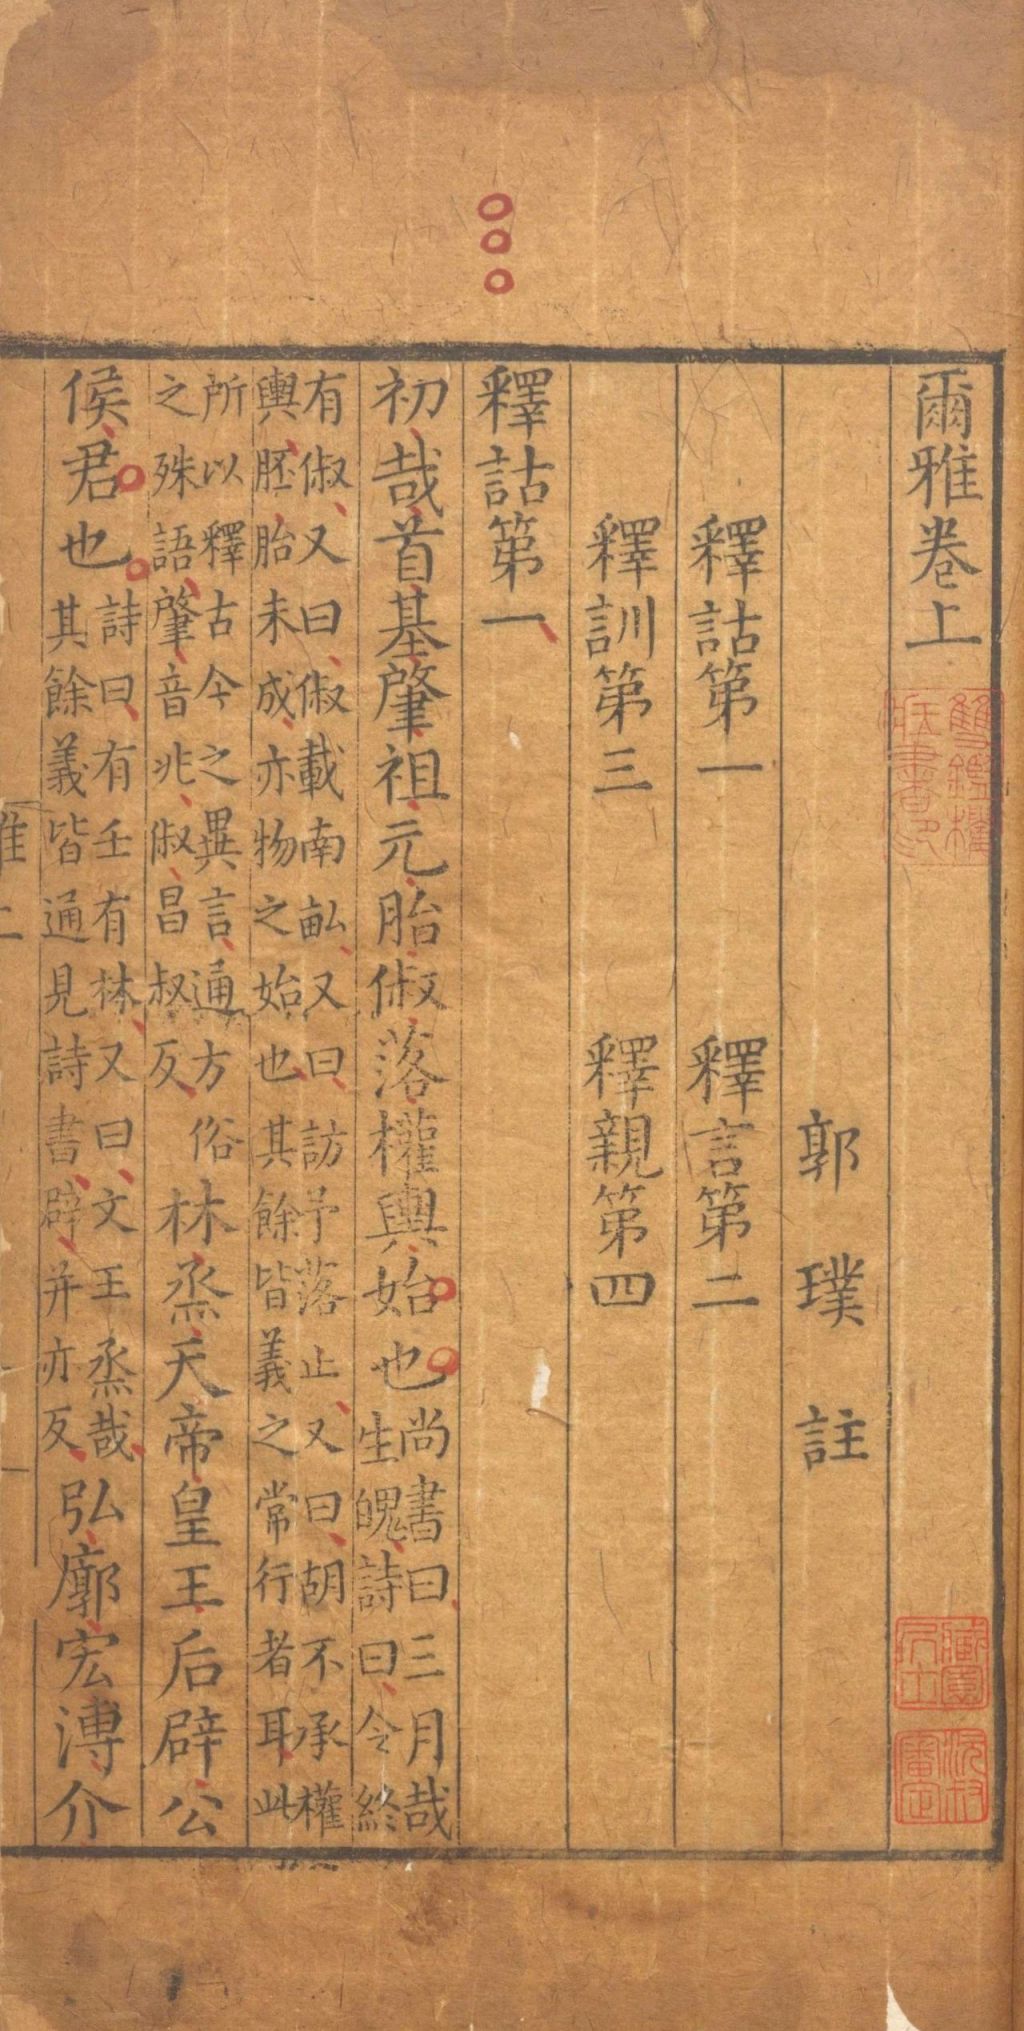 爾雅卷上
郭璞註
釋詁第一　釋言第二
釋訓第三　釋親第四
釋詁第一
初哉首基肇祖元胎俶落權輿始也尚書曰三月哉生魄詩曰令終
有俶又曰俶載南畝又曰訪予落止又曰胡不承權輿胚胎未成亦物之始也其餘皆義之常行者耳此
所以釋古今之異言通方俗之殊語肇音兆俶昌叔反林烝天帝皇王后辟公
侯君也詩曰有壬有林又曰文王烝哉其餘義皆通見詩書辟并亦反弘廓宏溥介
雙鑑樓藏書印
藏園居士
沅叔審定